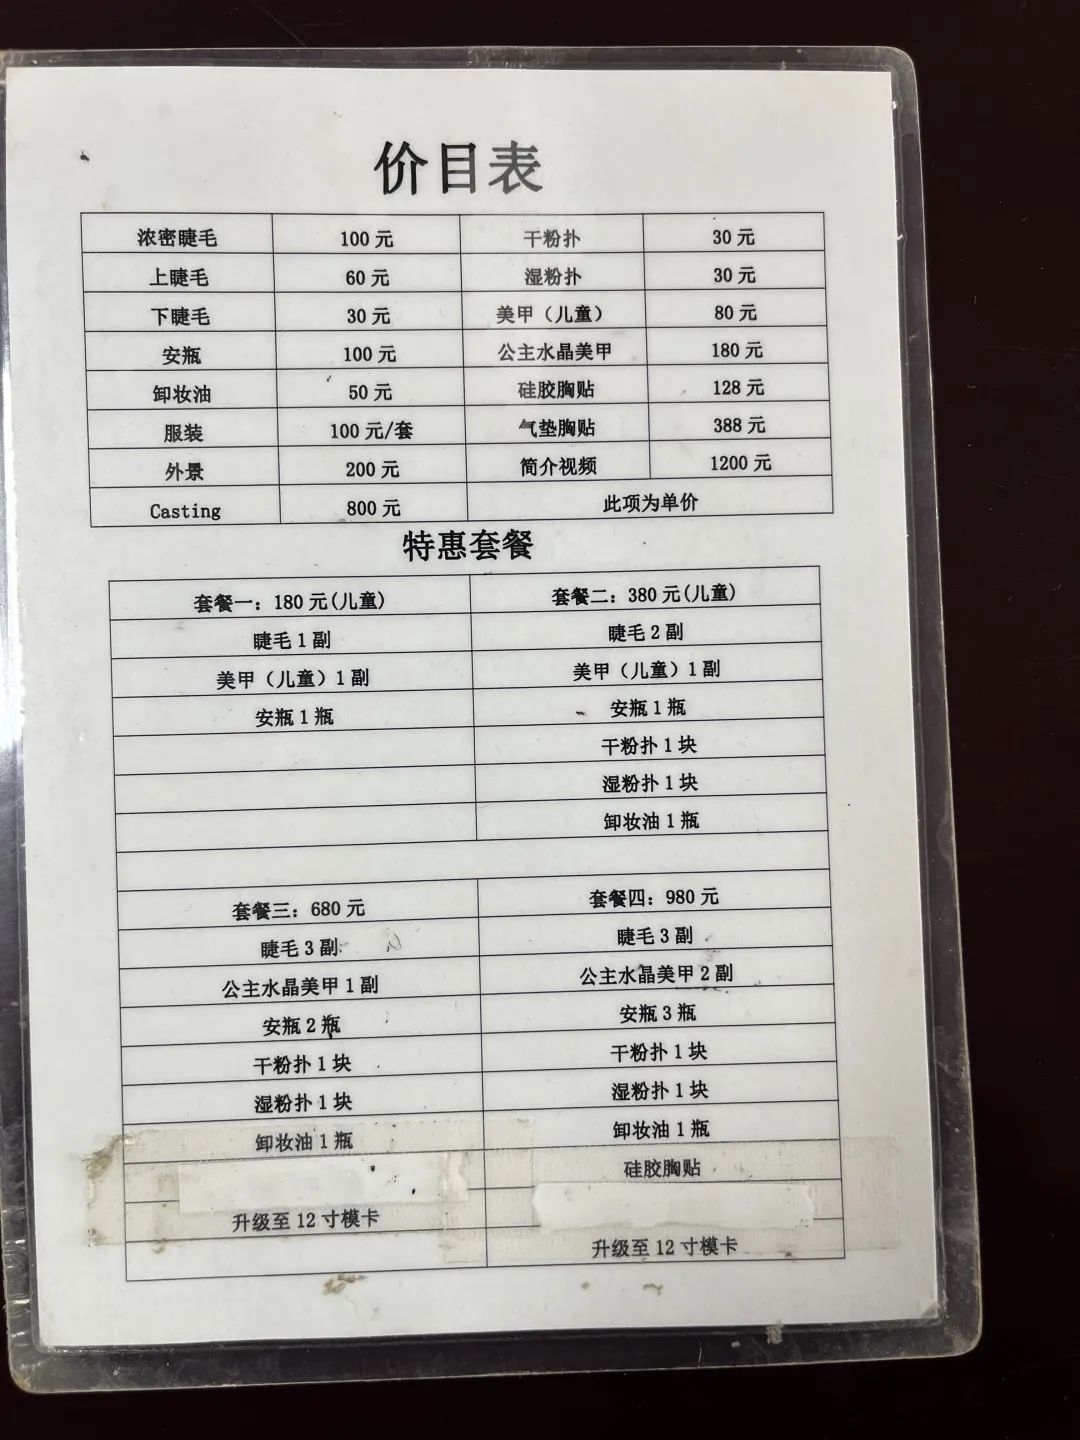 价目表
浓密睫毛 100元 干粉扑 30元
上睫毛 60元 湿粉扑 30元
下睫毛 30元 美甲（儿童） 80元
安瓶 100元 公主水晶美甲 180元
卸妆油 50元 硅胶胸贴 128元
服装 100元/套 气垫胸贴 388元
外景 200元 简介视频 1200元
Casting 800元 此项为单价
特惠套餐
套餐一：180元(儿童) 套餐二：380元(儿童)
睫毛1副 睫毛2副
美甲（儿童）1副 美甲（儿童）1副
安瓶1瓶 安瓶1瓶
干粉扑1块
湿粉扑1块
卸妆油1瓶
套餐三：680元 套餐四：980元
睫毛3副 睫毛3副
公主水晶美甲1副 公主水晶美甲2副
安瓶2瓶 安瓶3瓶
干粉扑1块 干粉扑1块
湿粉扑1块 湿粉扑1块
卸妆油1瓶 卸妆油1瓶
硅胶胸贴
升级至12寸模卡 升级至12寸模卡